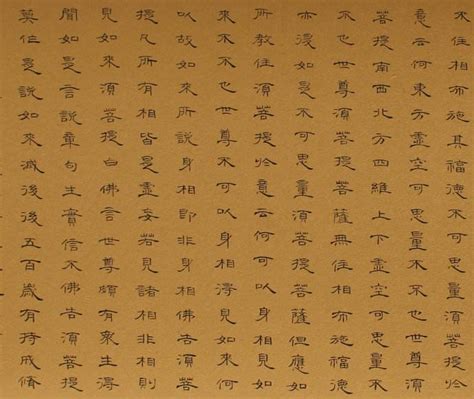 不住相布施其福德不可思量須菩提於
意云何東方虛空可思量不不也世尊須
菩提南西北方四維上下虛空可思量不
不也世尊須菩提菩薩無住相布施福德
亦復如是不可思量須菩提菩薩但應如
所教住須菩提於意云何可以身相見如
來不不也世尊不可以身相得見如來何
以故如來所說身相即非身相佛告須菩
提凡所有相皆是虛妄若見諸相非相則
見如來須菩提白佛言世尊頗有眾生得
聞如是言說章句生實信不佛告須菩提
莫作是說如來滅後後五百歲有持戒修